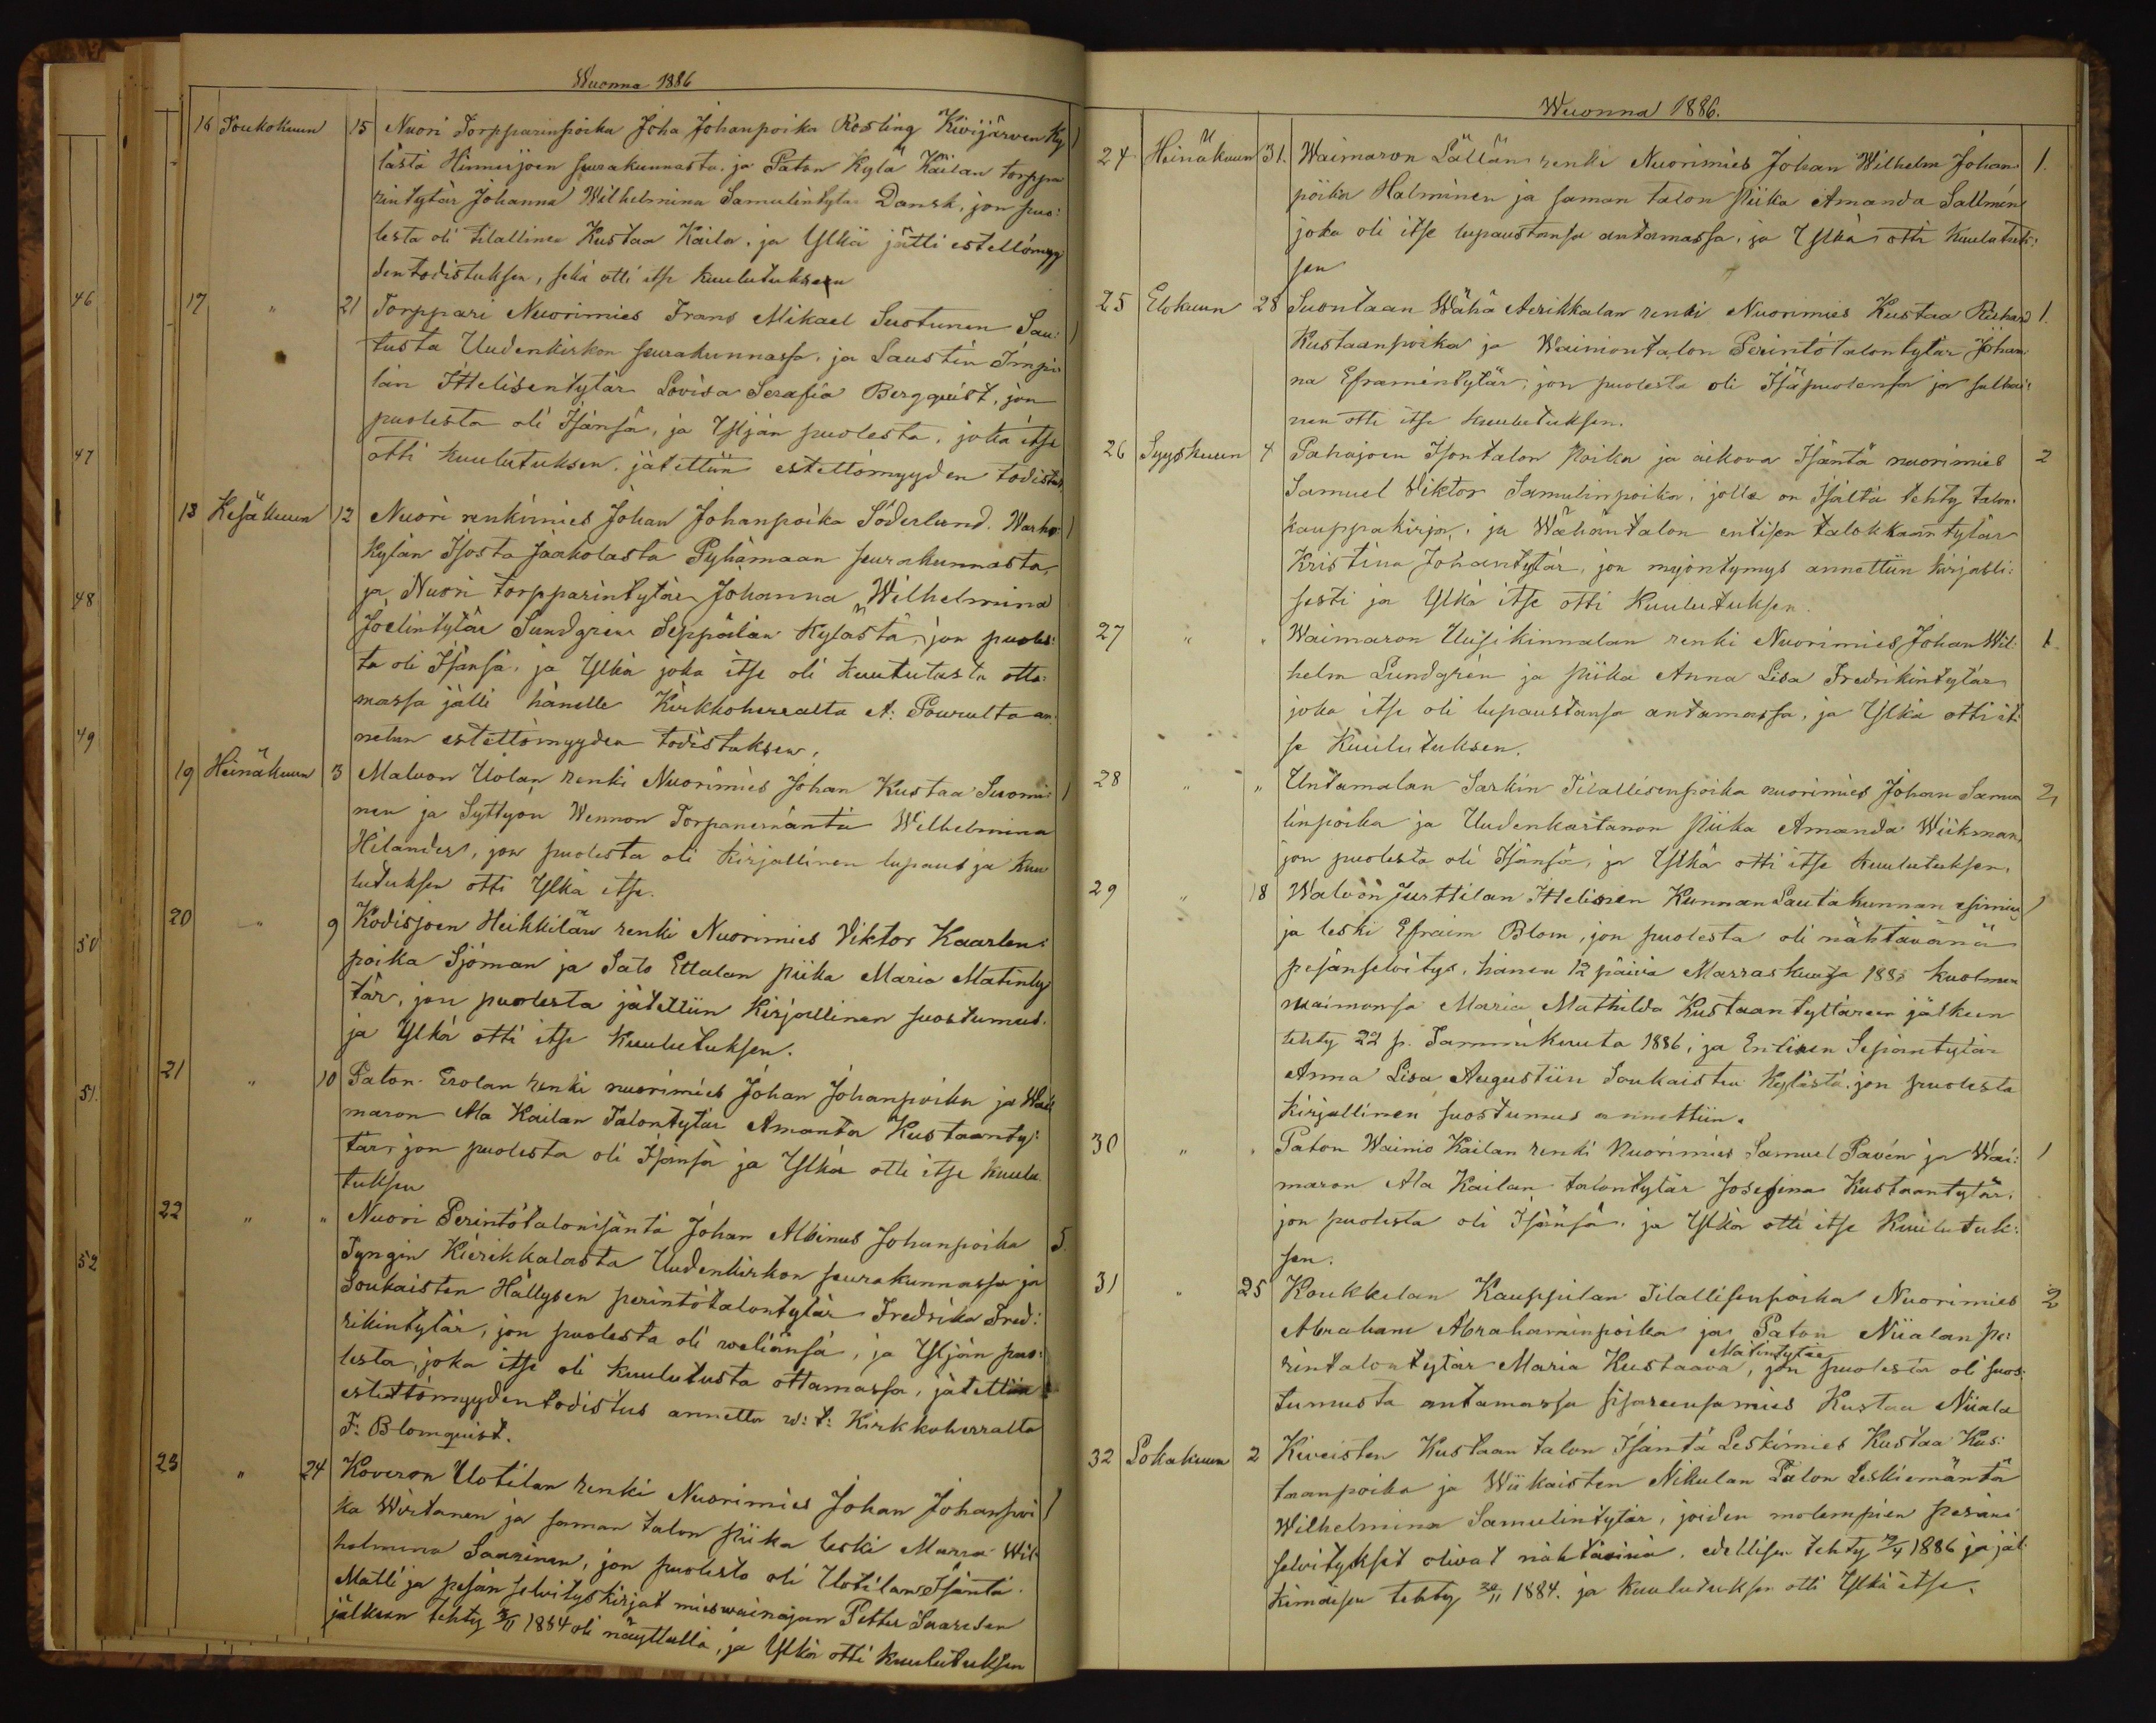 Wuonna 1886
16 Toukokuun 15 Nuori Torpparinpoika Joha Johanpoika Rosling Kivijärven Ky 1
lästä Hinnerjoen seurakunnasta, ja Paton Kylä Käilan torppa
rintytär Johanna Wilhelmina Samulintytär Dansk, jon puo:
lesta oli tilallinen Kustaa Kaila, ja Ylkä jätti estellömyy
den todistuksen, sekä otti itse kuulutuksen
17 " 21 Torppari Nuorimies Frans Mikael Suotunen Sau: 1
tusta Uudenkirkon seurakunnassa, ja Saustin Impi:
län Ittelisentytär Lovisa Serafia Bergquist, jon
puolesta oli Isänsä, ja Yljän puolesta, joka itse
otti kuulutuksen, jätettiin estettömyyden todistus
18 Kesäkuun 12 Nuori renkimies Johan Johanpoika Söderlund, Warho 1
kylän Isosta Jaakolasta Pyhämaan seurakunnasta,
ja Nuori torpparintytär Johanna Wilhelmina
Joelintytär Sundgren Seppälän Kylästä, jon puoles:
ta oli Isänsä, ja Ylkä joka itse oli kuulutusta otta:
massa jätti hänelle Kirkkoherralta A: Pourulta an:
netun estettömyyden todistuksen.
19 Heinäkuun 3 Malvon Uolan renki Nuorimies Johan Kustaa Suomi: 1
nen ja Syttyön Wennon Torpanemäntä Wilhelmina
Hilander, jon puolesta oli kirjallinen lupaus ja kuu
lutuksen otti Ylkä itse.
20 " 9 Kodisjoen Heikkilän renki Nuorimies Viktor Kaarlen:
poika Sjöman ja Sato Ettalan piika Maria Matinty
tär, jon puolesta jätettiin Kirjallinen suostumus.
ja Ylkä otti itse kuulutuksen.
21 " 10 Paton Erolan renki nuorimies Johan Johanpoika ja Wai
maron Ala Kailan Talontytär Amanta Kustaanty:
tär, jon puolesta oli Isänsä ja Ylkä otti itse kuulu
tuksen
22 " " Nuori Perintötalonisäntä Johan Albinus Johanpoika 5.
Tyngin Kierikkalasta Uudenkirkon seurakunnassa ja
Soukaisten Hällysen perintötalontytär Fredrika Fred:
rikintytär, jon puolesta oli veliänsä, ja Yljän puo:
lesta, joka itse oli kuulutusta ottamassa, jätettiin
estettömyyden todistus annettu w: t: Kirkkoherralta
F: Blomquist.
23 " 24 Koveron Uotilan renki Nuorimies Johan Johanpoi 1
ka Wirtanen ja saman talon piika leski Marra Wil
helmina Saarinen, jon puolesta oli Uotilan Isäntä
Matti ja pesänselvityskirjat mieswainajan Petter Saarisen
jälkeen tehty 3/11 1884 oli näyttällä, ja Ylkä otti kuulutuksen
46
47
48
49
50
51.
52
Wuonna 1886.
24 Heinäkuun 31. Waimaron Lällän renki Nuorimies Johan Wilhelm Johan 1.
poika Halminen ja saman talon piika Amanda Sallmén
joka oli itse lupaustansa antamassa, ja Ylkä otti kuulutuk:
sen
25 Elokuun 28 Suontaan Wähä Aerikkalan renki Nuorimies Kustaa Richard 1.
Kustaanpoika ja Waimontalon Perintötalontytär Johan
na Eframintytär, jon puolesta oli Isäpuolensa ja sulhai:
nen otti itse kuulutuksen.
26 Syyskuun 4 Pahajoen Isontalon Poika ja aikova Isäntä nuorimies 2
Samuel Viktor Samulinpoika, jolla on Isältä tehty talon:
kauppakirja, ja Wähäntalon entisen talokkaantytär
Kristina Johantytär, jon myöntymys annettiin kirjalli:
sesti ja Ylkä itse otti Kuulutuksen.
27 " " Waimaron Uusikinnalan renki Nuorimies Johan Wil: 1.
helm Lundgrén ja piika Anna Lisa Fredrikintytär
joka itse oli lupaustansa antamassa, ja Ylkä otti it:
se Kuulutuksen.
28 " " Untamalan Sarkin Tilallisenpoika nuorimies Johan Samu 2,
linpoika ja Uudenkartanon piika Amanda Wiikman,
jon puolesta oli Isänsä, ja Ylkä otti itse kuulutuksen.
29 " 18 Walvon Jurttilan Ittelisen Kunnan Lautakunnan esimies 1
ja leski Efraim Blom, jon puolesta oli nähtävänä
pesänselvitys, hänen 12 päivä Marraskuussa 188 kuolneen
waimonsa Maria Mathilda Kustaantyttären jälkeen
tehty 22 p. Tammikuuta 1886, ja Entisen Sepäntytär
Anna Lisa Augustiin Soukaisten Kylästä, jon puolesta
kirjallinen suostumus annettiin.
30 " " Paton Wainio Kailan renki Nuorimies Samuel Pavén ja Wai: 1
maron Ala Kailan talontytär Josefina Kustaantytär,
jon puolesta oli Isänsä, ja Ylkä otti itse Kuulutuk:
sen.
31 " 25 Koukkelan Kauppilan Tilallisenpoika Nuorimies 2
Abraham Abrahaminpoika ja Paton Niialan pe:
Matintytär
rintalontytär Maria Kustaava, jon puolesta oli suos:
tumusta antamassa sisarensamies Kustaa Niiala
32 Lokakuun 2 Kiveisten Kustaan talon Isäntä Leskimies Kustaa Kus:
taanpoika ja Wiikaisten Nikulan Talon Leskiemäntä
Wilhelmina Samulintytär, joiden molempien pesän:
selvitykset olivat nähtävinä, edellisen tehty /4 1886 ja jäl:
kimäisen tehty /11 1884. ja kuulutuksen otti Ylkä itse.